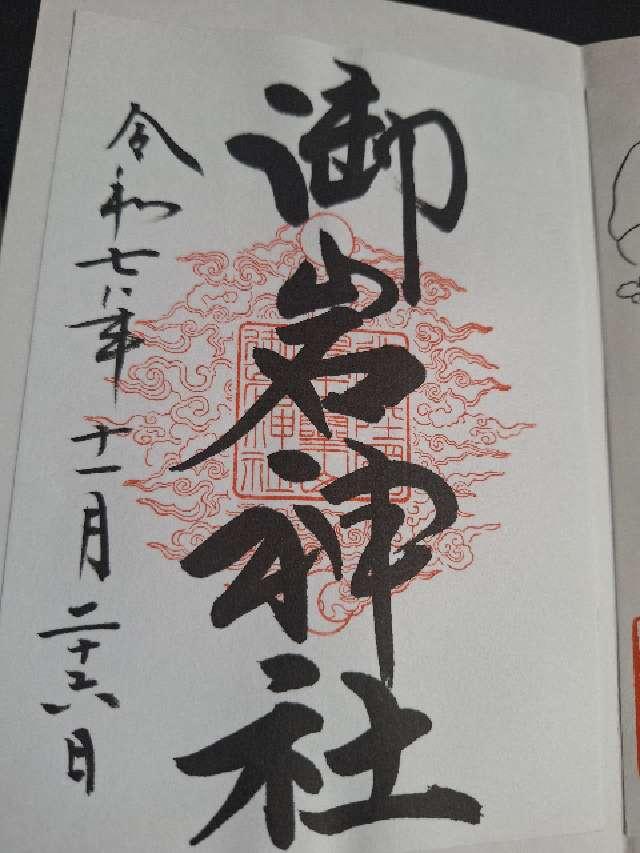 御岩神社
令和七年十一月二十六日